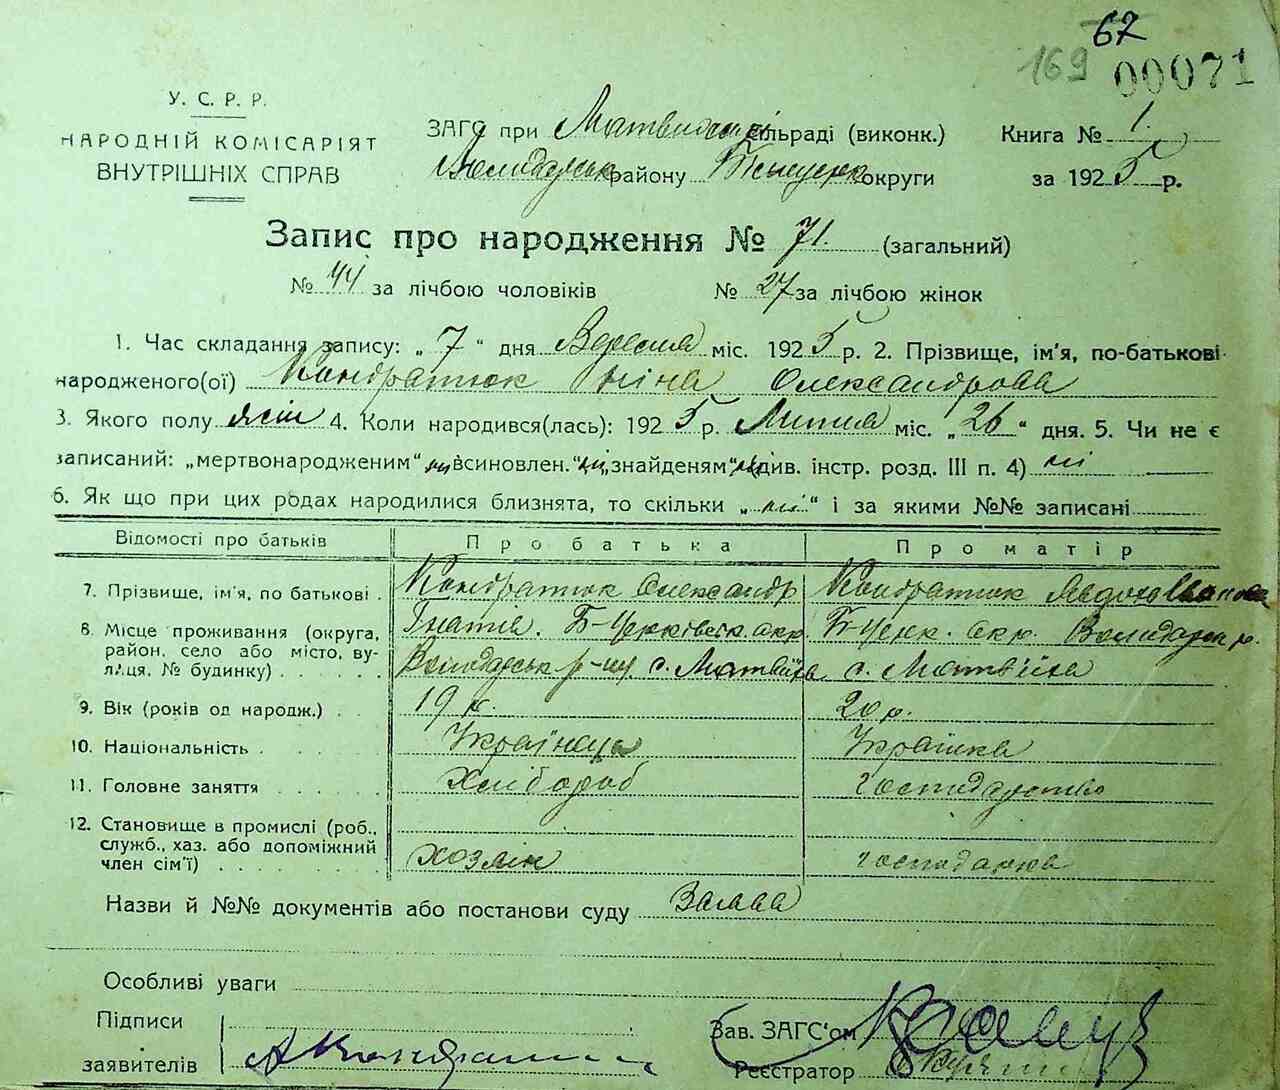 67
169 00071
У. С. Р. Р.
НАРОДНІЙ КОМІСАРІЯТ
ВНУТРІШНІХ СПРАВ
ЗАГС при сільраді (виконк.)
району округи
Книга № 1.
за 1925 р.
Запис про народження № 71. (загальний)
№ 44 за лічбою чоловіків № 27 за лічбою жінок
1. Час складання запису: „ 7 “ дня Вересня міс. 1925 р. 2. Прізвище, ім'я, по-батькові
народженого(ої) Кондратюк Ніна Олександрова
3. Якого полу жін 4. Коли народився(лась): 1925 р. Липня міс. „ 26 “ дня. 5. Чи не є
записаний: „мертвонародженим“ ні „всиновлен.“ ні „знайденям“ ні (див. інстр. розд. III п. 4) ні
6. Як що при цих родах народилися близнята, то скільки „ ні “ і за якими №№ записані
Відомості про батьків Про батька Про матір
7. Прізвище, ім'я, по батькові . Кондратюк Олександр Кондратюк Явдоха Іванова
8. Місце проживання (округа, Гната. Б-Церківськ. окр. Б-Церк. окр. Володарськ р.
район, село або місто, ву-
лиця, № будинку) . . . . . Володарськ р-ну с. Матвіїха с. Матвіїха
9. Вік (років од народж.) . . 19 р. 20 р.
10. Національність . . . . Українець Українка
11. Головне заняття . . . . . Хлібороб господарство
12. Становище в промислі (роб.,
служб., хаз. або допоміжний
член сім'ї) . . . . . . . . хозяїн господарка
Назви й №№ документів або постанови суду Заява
Особливі уваги
Підписи
заявителів
Зав. ЗАГС'ом
Реєстратор